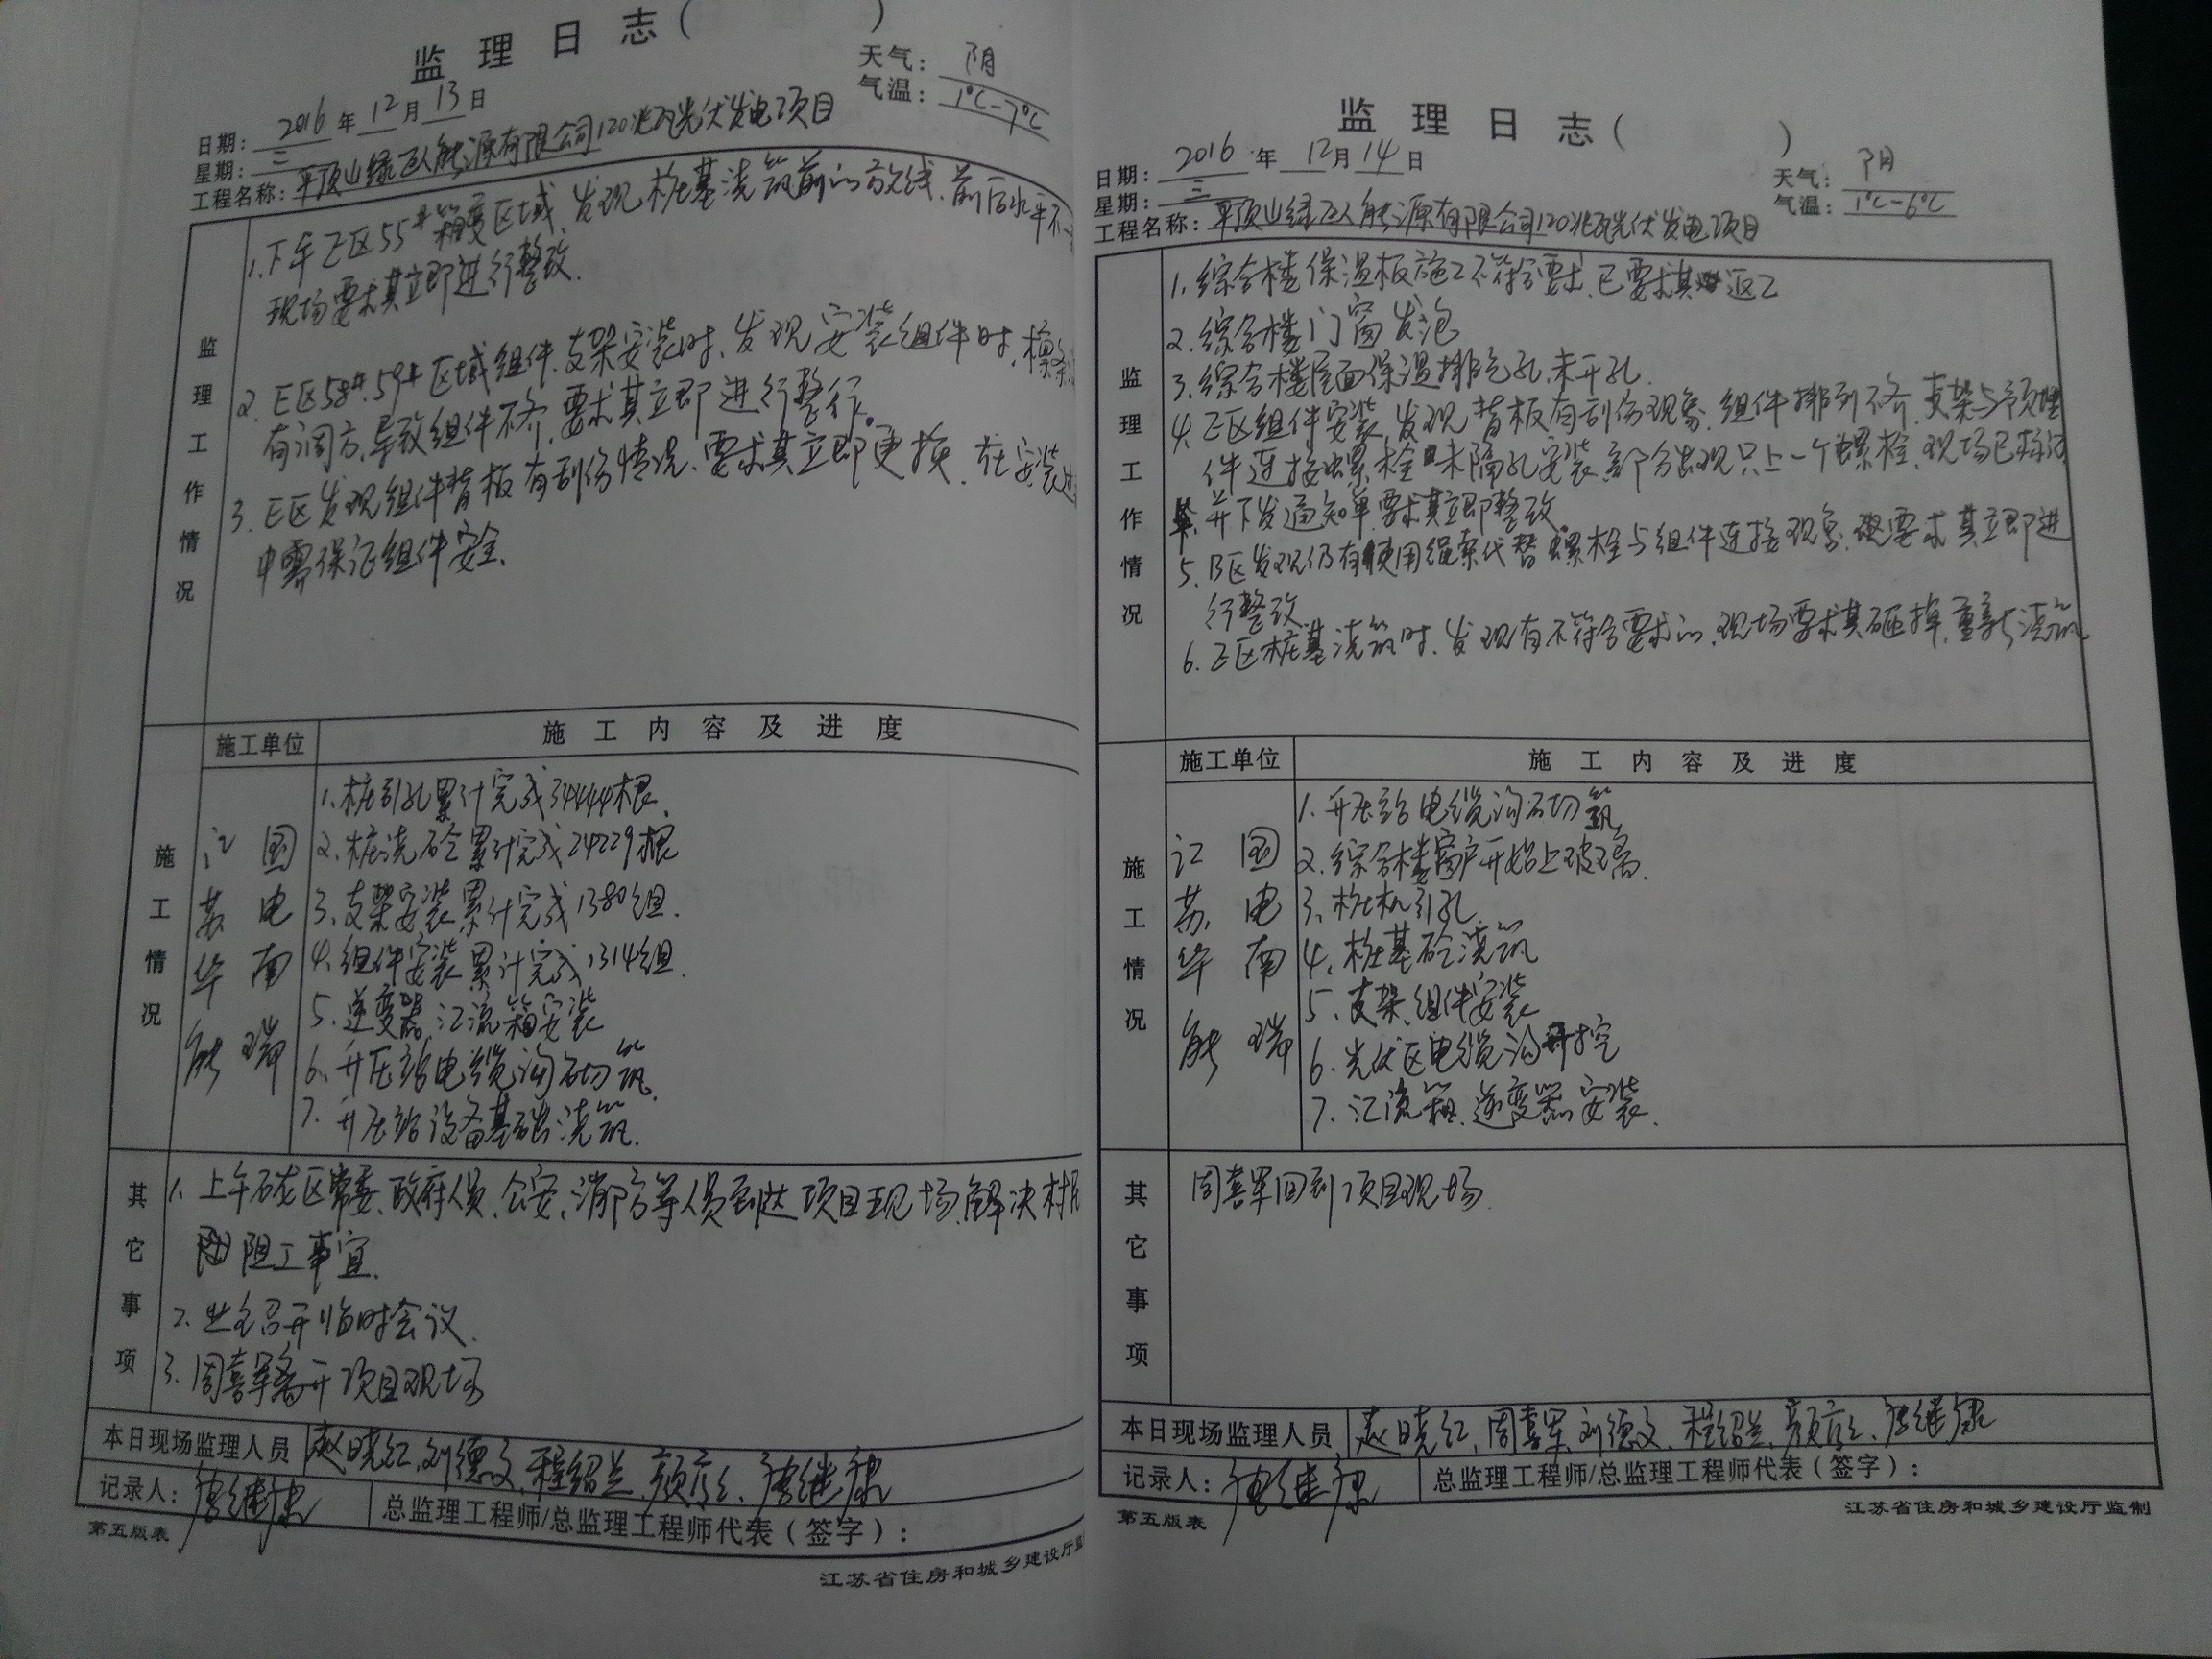 监理日志(          )
日期: 2016年12月13日
天气: 阴
星期: 二
气温: 1℃-7℃
工程名称: 平顶山绿巨人能源有限公司120兆瓦光伏发电项目
监理工作情况
1.下午E区55#箱变区域,发现桩基浇筑前的放线,前后水平不
现场要求其立即进行整改.
2.E区58#.59#区域组件.支架安装时,发现安装组件时,檩条
有润方,导致组件不齐,要求其立即进行整行。
3.E区发现组件背板有刮伤情况,要求其立即更换.在安装过
中需保证组件安全.
施工单位
施工内容及进度
施工情况
江苏华能
国电南瑞
1.桩引孔累计完成34444根.
2.桩浇砼累计完成24229根
3.支架安装累计完成1380组.
4.组件安装累计完成1314组.
5.逆变器.汇流箱安装
6.升压站电缆沟砌筑.
7.升压站设备基础浇筑.
其它事项
1.上午石龙区常委、政府人员、公安、消防等人员到达项目现场,解决村民
阻工事宜.
2.业主召开临时会议.
3.周喜军离开项目现场
本日现场监理人员 赵晓红,刘德文,程绍兰,唐继康
记录人: 唐继康
总监理工程师/总监理工程师代表(签字):
第五版表
江苏省住房和城乡建设厅监
监理日志(          )
日期: 2016年12月14日
天气: 阴
星期: 三
气温: 1℃-6℃
工程名称: 平顶山绿巨人能源有限公司120兆瓦光伏发电项目
监理工作情况
1.综合楼保温板施工不符合要求,已要求其返工
2.综合楼门窗发泡
3.综合楼屋面保温排气孔,未开孔.
4.E区组件安装,发现背板有刮伤现象,组件排列不齐,支架与预埋
件连接螺栓未隔孔安装,部分出现只上一个螺栓,现场已标记
并下发通知单,要求其立即整改
5.B区发现仍有使用绳索代替螺栓与组件连接现象,要求其立即进
行整改
6.E区桩基浇筑时,发现有不符合要求的,现场要求其砸掉,重新浇筑
施工单位
施工内容及进度
施工情况
江苏华能
国电南瑞
1.升压站电缆沟砌筑
2.综合楼窗户开始上玻璃.
3.桩机引孔
4.桩基砼浇筑
5.支架、组件安装
6.光伏区电缆沟开挖
7.汇流箱.逆变器安装.
其它事项
周喜军回到项目现场.
本日现场监理人员 赵晓红,周喜军,刘德文,程绍兰,唐继康
记录人: 唐继康
总监理工程师/总监理工程师代表(签字):
第五版表
江苏省住房和城乡建设厅监制